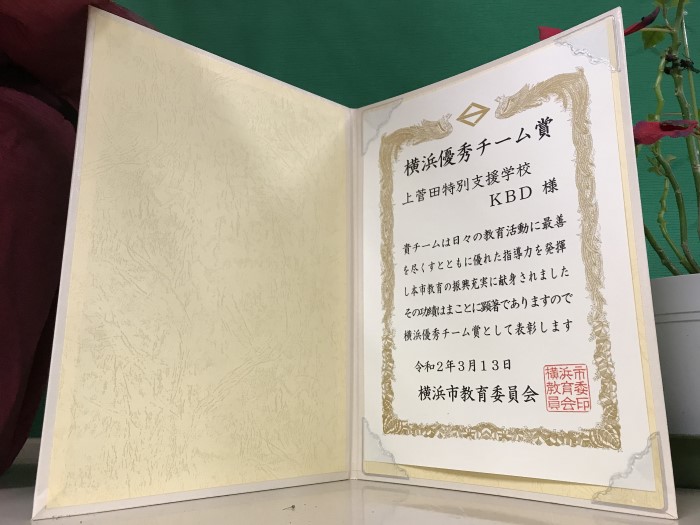 横浜優秀チーム賞
上菅田特別支援学校
KBD 様
貴チームは日々の教育活動に最善
を尽くすとともに優れた指導力を発揮
し本市教育の振興充実に献身されました
その功績はまことに顕著でありますので
横浜優秀チーム賞として表彰します
令和2年3月13日
横浜市教育委員会
横浜市教育委員会印